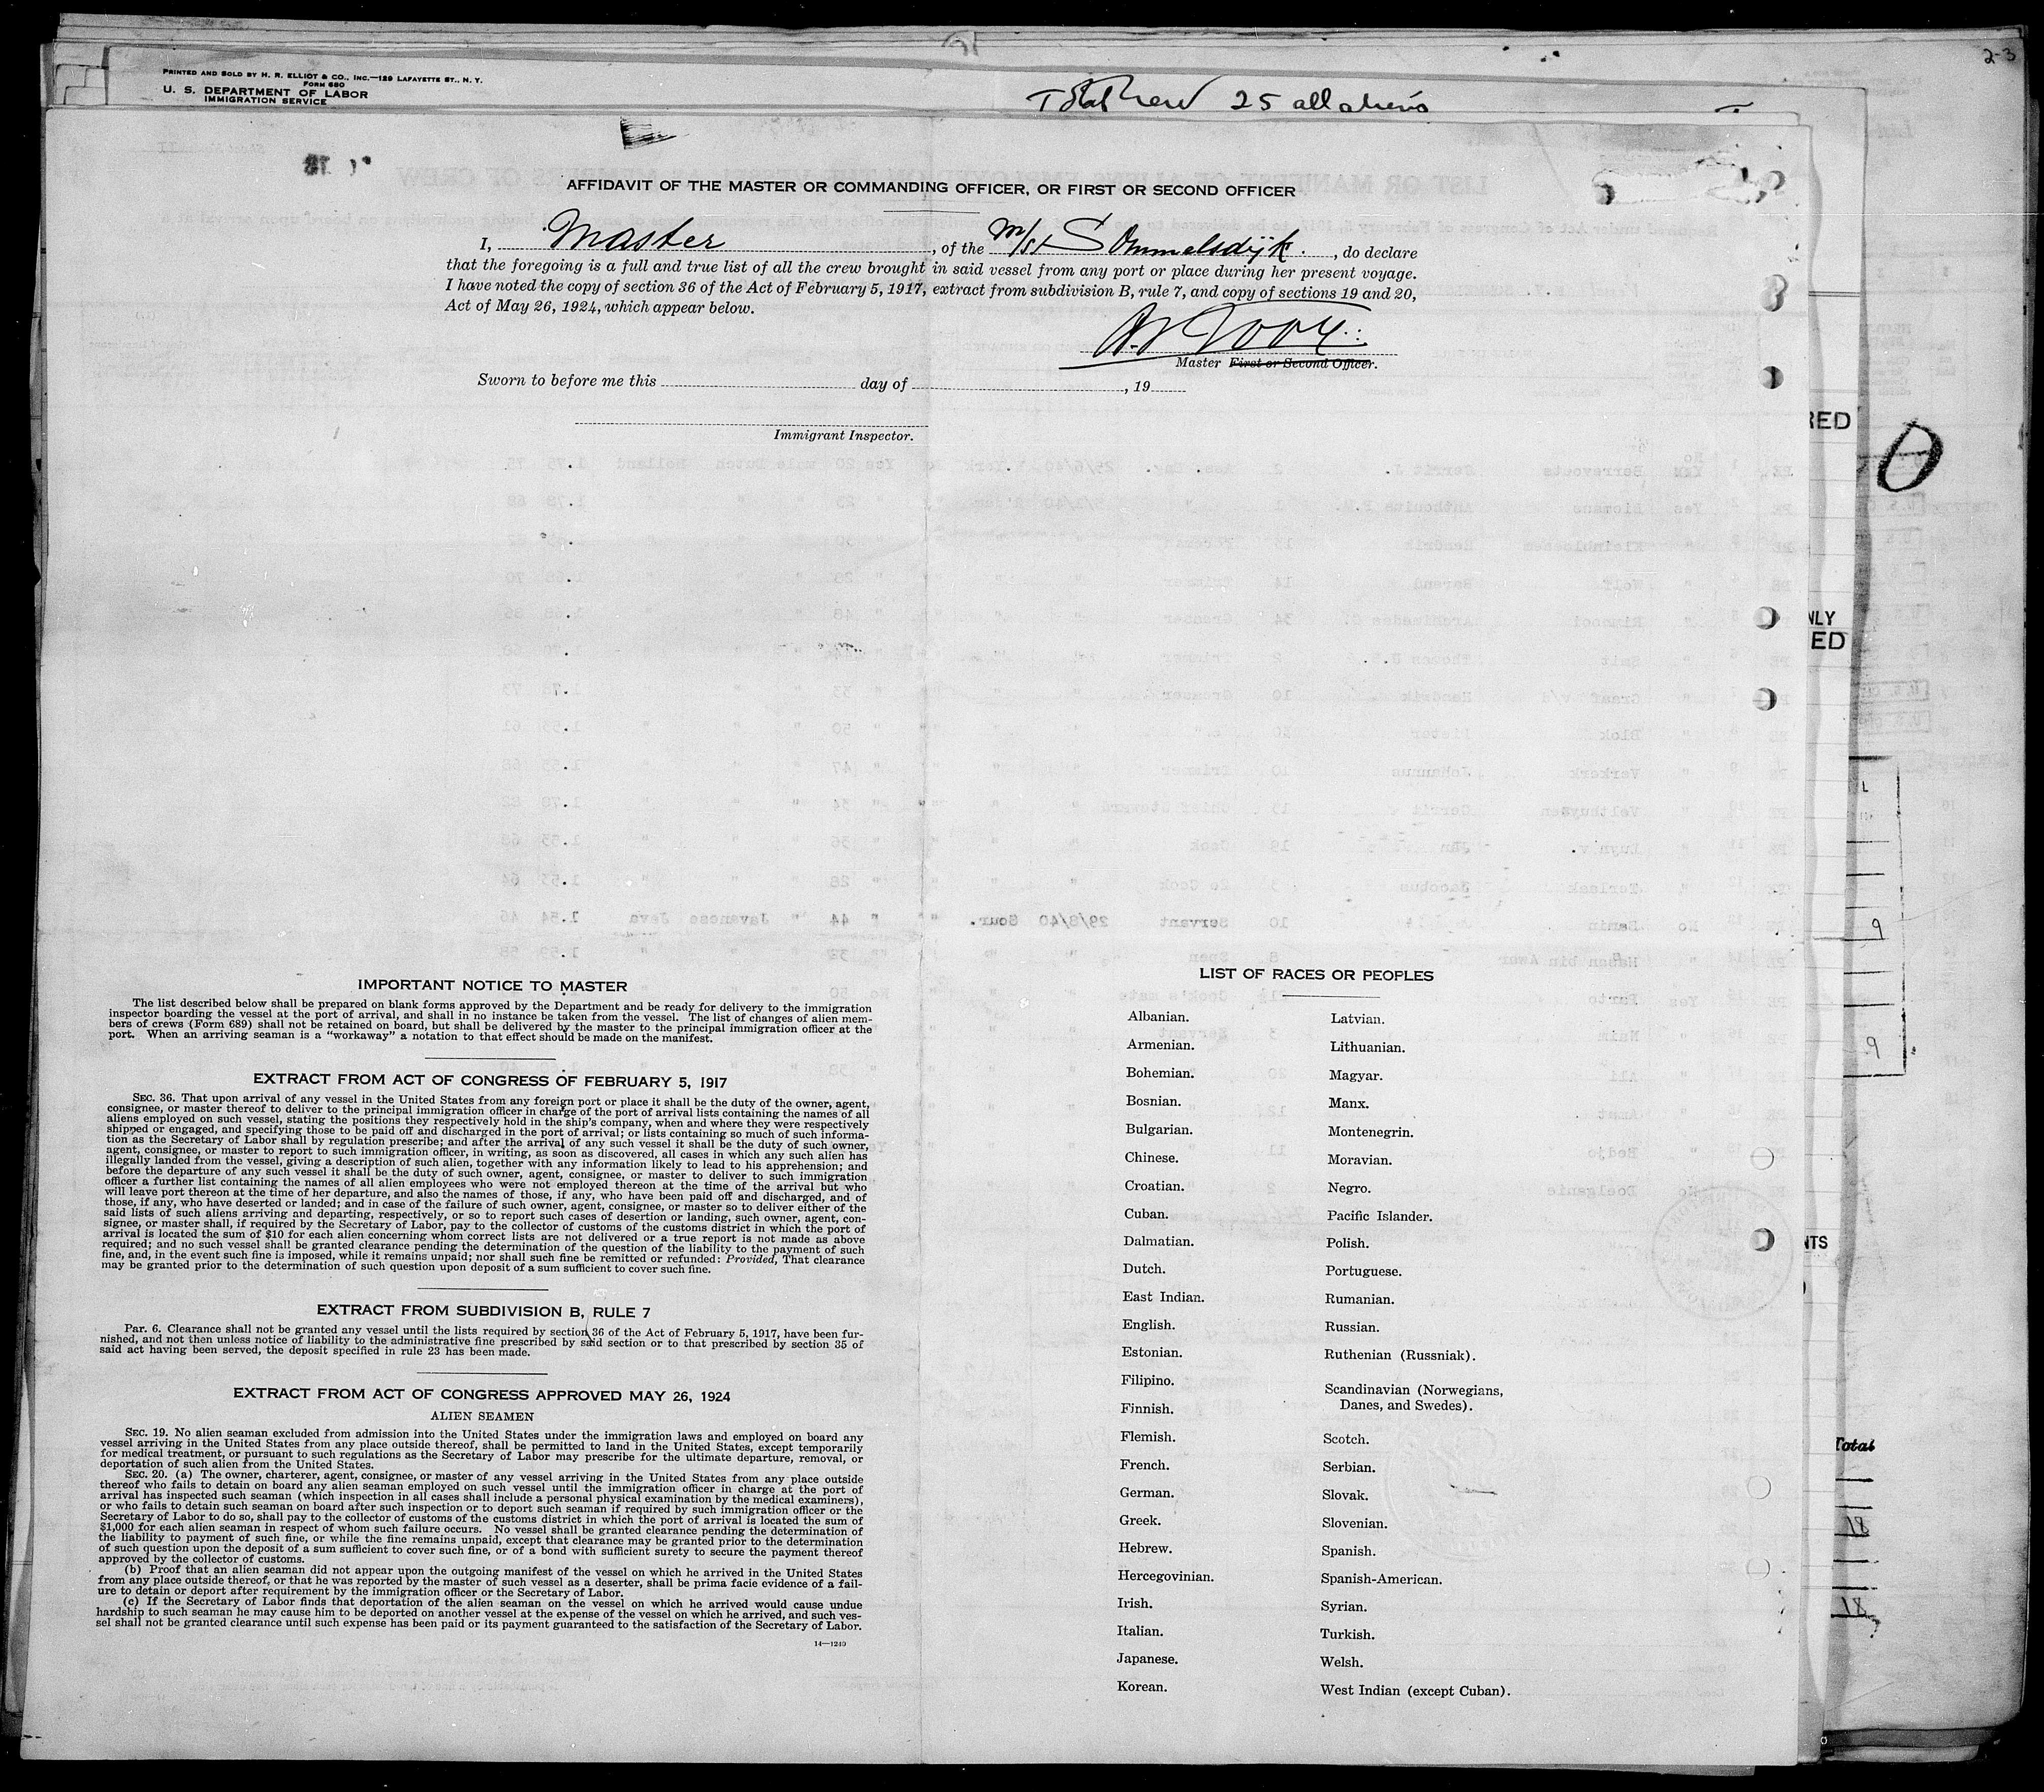 2-3
PRINTED AND SOLD BY H. R. ELLIOT & CO., INC.—129 LAFAYETTE ST., N. Y.
FORM 680
U. S. DEPARTMENT OF LABOR
IMMIGRATION SERVICE
Total crew 25 all aliens
AFFIDAVIT OF THE MASTER OR COMMANDING OFFICER, OR FIRST OR SECOND OFFICER
I, Master, of the m/s Sommelsdijk, do declare
that the foregoing is a full and true list of all the crew brought in said vessel from any port or place during her present voyage.
I have noted the copy of section 36 of the Act of February 5, 1917, extract from subdivision B, rule 7, and copy of sections 19 and 20,
Act of May 26, 1924, which appear below.
Master First or Second Officer.
Sworn to before me this day of , 19
Immigrant Inspector.
IMPORTANT NOTICE TO MASTER
The list described below shall be prepared on blank forms approved by the Department and be ready for delivery to the immigration
inspector boarding the vessel at the port of arrival, and shall in no instance be taken from the vessel. The list of changes of alien mem-
bers of crews (Form 689) shall not be retained on board, but shall be delivered by the master to the principal immigration officer at the
port. When an arriving seaman is a "workaway" a notation to that effect should be made on the manifest.
EXTRACT FROM ACT OF CONGRESS OF FEBRUARY 5, 1917
SEC. 36. That upon arrival of any vessel in the United States from any foreign port or place it shall be the duty of the owner, agent,
consignee, or master thereof to deliver to the principal immigration officer in charge of the port of arrival lists containing the names of all
aliens employed on such vessel, stating the positions they respectively hold in the ship's company, when and where they were respectively
shipped or engaged, and specifying those to be paid off and discharged in the port of arrival; or lists containing so much of such informa-
tion as the Secretary of Labor shall by regulation prescribe; and after the arrival of any such vessel it shall be the duty of such owner,
agent, consignee, or master to report to such immigration officer, in writing, as soon as discovered, all cases in which any such alien has
illegally landed from the vessel, giving a description of such alien, together with any information likely to lead to his apprehension; and
before the departure of any such vessel it shall be the duty of such owner, agent, consignee, or master to deliver to such immigration
officer a further list containing the names of all alien employees who were not employed thereon at the time of the arrival but who
will leave port thereon at the time of her departure, and also the names of those, if any, who have been paid off and discharged, and of
those, if any, who have deserted or landed; and in case of the failure of such owner, agent, consignee, or master so to deliver either of the
said lists of such aliens arriving and departing, respectively, or so to report such cases of desertion or landing, such owner, agent, con-
signee, or master shall, if required by the Secretary of Labor, pay to the collector of customs of the customs district in which the port of
arrival is located the sum of $10 for each alien concerning whom correct lists are not delivered or a true report is not made as above
required; and no such vessel shall be granted clearance pending the determination of the question of the liability to the payment of such
fine, and, in the event such fine is imposed, while it remains unpaid; nor shall such fine be remitted or refunded: Provided, That clearance
may be granted prior to the determination of such question upon deposit of a sum sufficient to cover such fine.
EXTRACT FROM SUBDIVISION B, RULE 7
Par. 6. Clearance shall not be granted any vessel until the lists required by section 36 of the Act of February 5, 1917, have been fur-
nished, and not then unless notice of liability to the administrative fine prescribed by said section or to that prescribed by section 35 of
said act having been served, the deposit specified in rule 23 has been made.
EXTRACT FROM ACT OF CONGRESS APPROVED MAY 26, 1924
ALIEN SEAMEN
SEC. 19. No alien seaman excluded from admission into the United States under the immigration laws and employed on board any
vessel arriving in the United States from any place outside thereof, shall be permitted to land in the United States, except temporarily
for medical treatment, or pursuant to such regulations as the Secretary of Labor may prescribe for the ultimate departure, removal, or
deportation of such alien from the United States.
SEC. 20. (a) The owner, charterer, agent, consignee, or master of any vessel arriving in the United States from any place outside
thereof who fails to detain on board any alien seaman employed on such vessel until the immigration officer in charge at the port of
arrival has inspected such seaman (which inspection in all cases shall include a personal physical examination by the medical examiners),
or who fails to detain such seaman on board after such inspection or to deport such seaman if required by such immigration officer or the
Secretary of Labor to do so, shall pay to the collector of customs of the customs district in which the port of arrival is located the sum of
$1,000 for each alien seaman in respect of whom such failure occurs. No vessel shall be granted clearance pending the determination of
the liability to payment of such fine, or while the fine remains unpaid, except that clearance may be granted prior to the determination
of such question upon the deposit of a sum sufficient to cover such fine, or of a bond with sufficient surety to secure the payment thereof
approved by the collector of customs.
(b) Proof that an alien seaman did not appear upon the outgoing manifest of the vessel on which he arrived in the United States
from any place outside thereof, or that he was reported by the master of such vessel as a deserter, shall be prima facie evidence of a fail-
ure to detain or deport after requirement by the immigration officer or the Secretary of Labor.
(c) If the Secretary of Labor finds that deportation of the alien seaman on the vessel on which he arrived would cause undue
hardship to such seaman he may cause him to be deported on another vessel at the expense of the vessel on which he arrived, and such ves-
sel shall not be granted clearance until such expense has been paid or its payment guaranteed to the satisfaction of the Secretary of Labor.
14—1240
LIST OF RACES OR PEOPLES
Albanian.
Armenian.
Bohemian.
Bosnian.
Bulgarian.
Chinese.
Croatian.
Cuban.
Dalmatian.
Dutch.
East Indian.
English.
Estonian.
Filipino.
Finnish.
Flemish.
French.
German.
Greek.
Hebrew.
Hercegovinian.
Irish.
Italian.
Japanese.
Korean.
Latvian.
Lithuanian.
Magyar.
Manx.
Montenegrin.
Moravian.
Negro.
Pacific Islander.
Polish.
Portuguese.
Rumanian.
Russian.
Ruthenian (Russniak).
Scandinavian (Norwegians,
Danes, and Swedes).
Scotch.
Serbian.
Slovak.
Slovenian.
Spanish.
Spanish-American.
Syrian.
Turkish.
Welsh.
West Indian (except Cuban).
Total
18
18